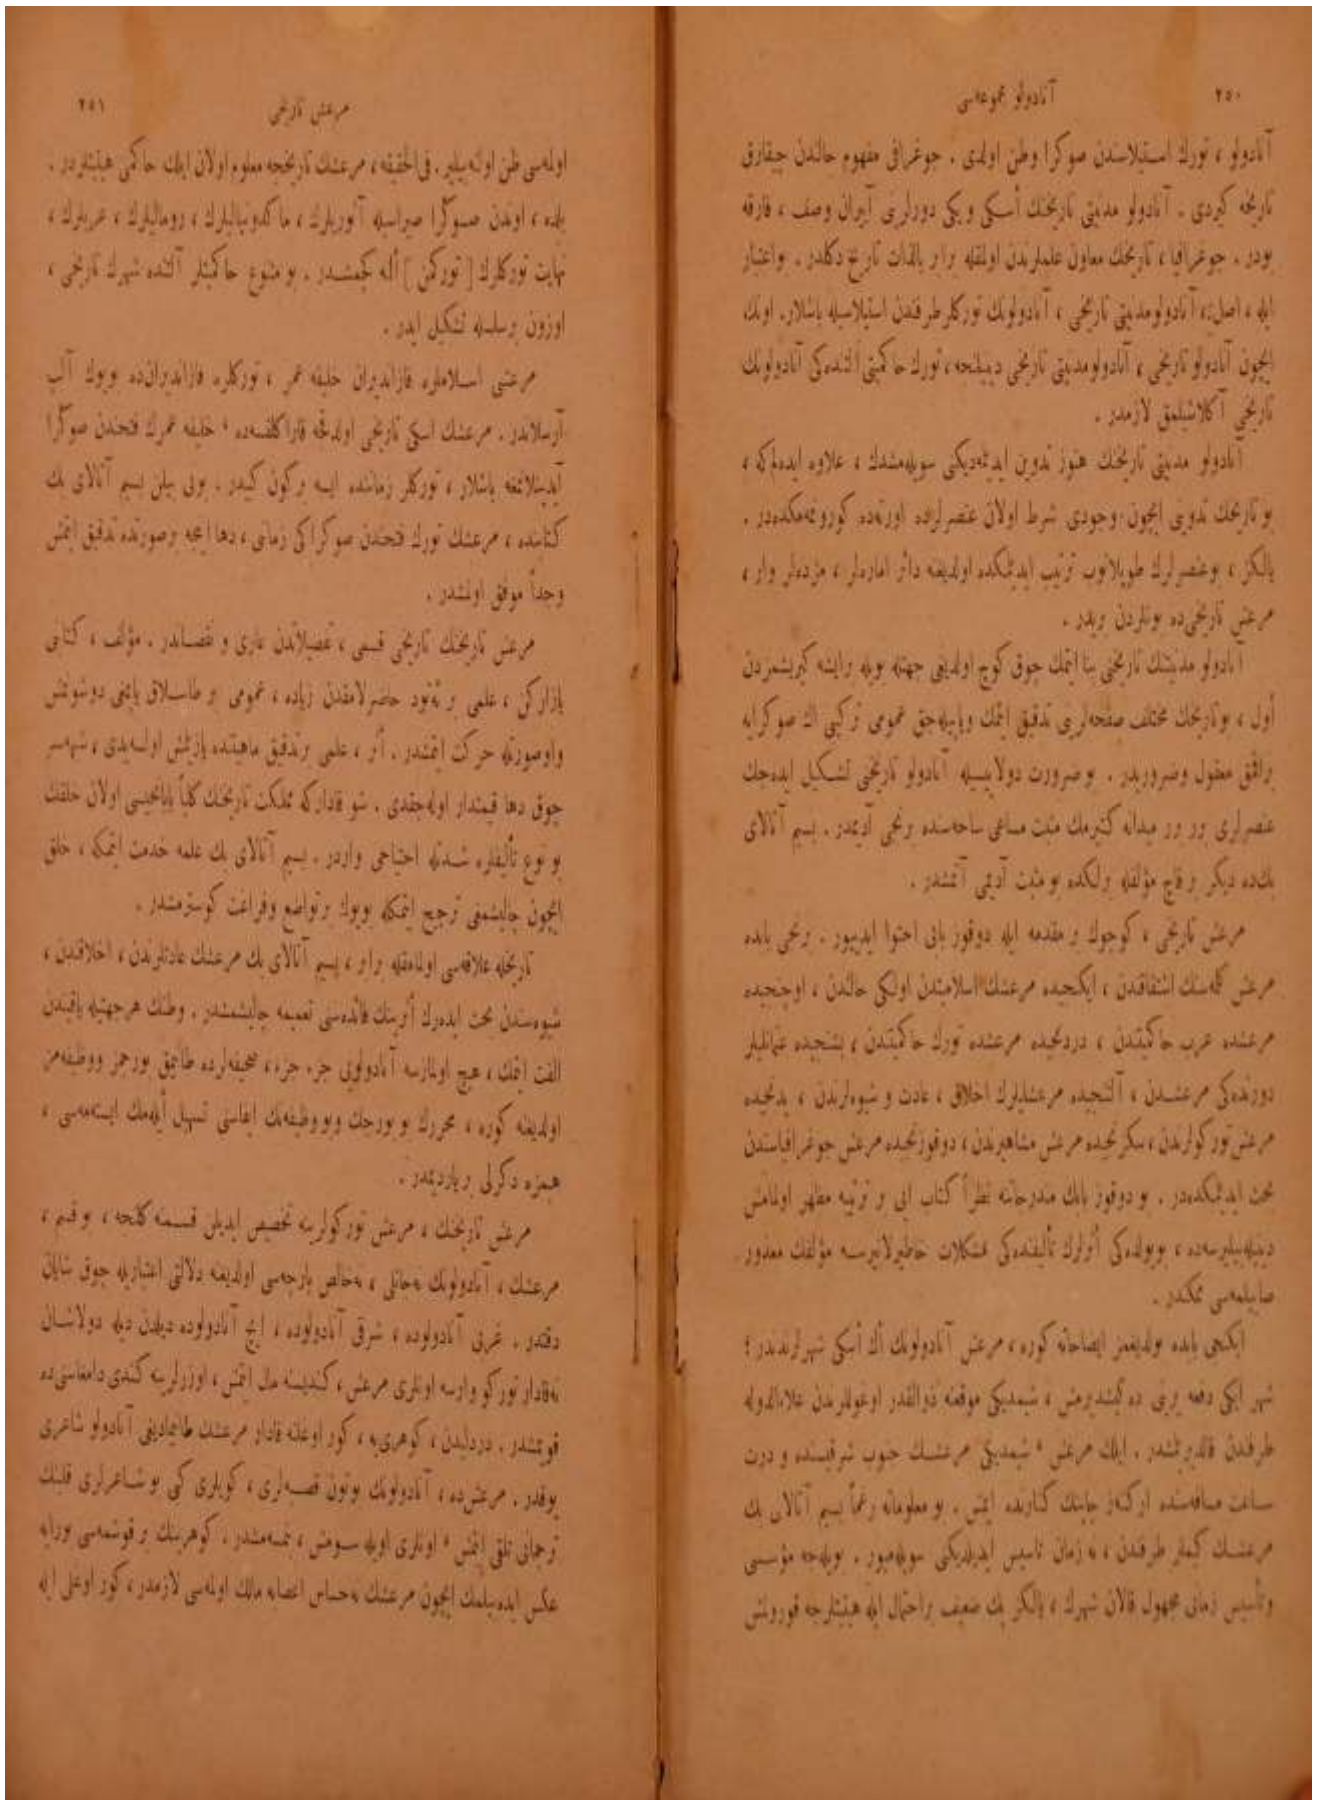 ٢٥٠
آنادولو مجموعه‌سی
آنادولو ، تورك استیلاسندن صوكرا وطن اولدی . جوغرافی مفهوم حالندن چیقارق
تاریخه كیردی . آنادولو مدنیتی تاریخنك أسكی و یكی دورلری آیران وصف ، فارقه
بودر . جوغرافیا ، تاریخك معاون علملرندن اولمقله برابر بالذات تاریخ دكلدر . بواعتبار
ایله ، اصل آنادولو مدنیتی تاریخی ، آنادولونك توركلر طرفندن استیلاسیله باشلار. اونك
ایچون آنادولو تاریخی ، آنادولو مدنیتی تاریخی دینلنجه ، تورك حاكمیتی آلتنده‌كی آنادولونك
تاریخی آكلاشیلمق لازمدر .
آنادولو مدنیتی تاریخنك هنوز تدوین ایدیلمدیكنی سویله‌مشدك ، علاوه ایده‌لم كه ،
بو تاریخك تدوینی ایچون وجودی شرط اولان عنصرلرده اورته‌ده كورونمه‌مكده‌در .
یالكز ، بو عنصرلرك طوپلانوب ترتیب ایدیلمكده اولدیغنه دائر اماره‌لر ، مژده‌لر وار ،
مرعش تاریخی ده بونلردن بریدر .
آنادولو مدنیتنك تاریخنی بنا ایتمك چوق كوچ اولدیغی جهتله بویله بر ایشه كیریشمزدن
أول ، بو تاریخك مختلف صفحه‌لرینی تدقیق ایتمك و یاپیله‌جق عمومی تركیبی اك صوكرایه
براقمق معقول وضروریدر . بو ضرورت دولاییسیله آنادولو تاریخنی تشكیل ایده‌جك
عنصرلری برر برر میدانه كتیرمك مثبت مساعی ساحه‌سنده برنجی آدیمدر . بسیم آتالای
بك‌ده دیكر بر قاچ مؤلفله برلكده بو مثبت آدیمی آتمشدر .
مرعش تاریخی ، كوچوك بر مقدمه ایله دوقوز بابی احتوا ایدییور . برنجی بابده
مرعش كله‌سنك اشتقاقندن ، ایكنجیده مرعشك اسلامیتدن اولكی حالندن ، اوچنجیده
مرعشده عرب حاكمیتندن ، دردنجیده مرعشده تورك حاكمیتندن ، بشنجیده عثمانلیلر
دورنده‌كی مرعشدن ، آلتنجیده مرعشلیلرك اخلاق ، عادت و شیوه‌لرندن ، یدنجیده
مرعش توركولرندن ، سكزنجیده مرعش مشاهیرندن ، دوقوزنجیده مرعش جوغرافیاسندن
بحث ایدیلمكده‌در . بو دوقوز بابك مندرجاتنه نظراً كتاب ایی بر ترتیبه مظهر اولمامش
دینیله‌بیلیرسه‌ده ، بو یولده‌كی أثرلرك تألیفنده‌كی مشكلات خاطرلانیرسه مؤلفك معذور
صاییلمه‌سی ممكندر .
ایكنجی بابده بولدیغمز ایضاحاته كوره ، مرعش آنادولونك اك أسكی شهرلرندندر ؛
شهر ایكی دفعه یرینی ده‌كیشدیرمش ، شیمدیكی موقعنه ذوالقدر اوغوللرندن علاءالدوله
طرفندن قالدیرلمشدر . ایلك مرعش شیمدیكی مرعشك جنوب شرقیسنده و درت
ساعت مسافه‌سنده اركنز چاینك كنارنده ایمش . بو معلوماته رغماً بسیم آتالای بك
مرعشك كیملر طرفندن ، نه زمان تأسیس ایدیلدیكنی سویله‌میور . بویله‌جه مؤسسی
و تأسیس زمانی مجهول قالان شهرك ، یالكز پك ضعیف بر احتمال ایله هیتیتلرجه قورولمش
مرعش تاریخی
٢٥١
اولمه‌سی ظن اولنه‌بیلیر . فی‌الحقیقه ، مرعشك تاریخجه معلوم اولان ایلك حاكمی هیتیتلردر .
بلده ، اوندن صوكرا صیراسیله آثوریلرك ، ماكدونیالیلرك ، رومالیلرك ، عربلرك ،
نهایت توركلرك [ توركمن ] ألنه كچمشدر . بو متنوع حاكمیتلر آلتنده شهرك تاریخی ،
اوزون بر سلسله تشكیل ایدر .
مرعشی اسلاملره قازاندیران خلیفه عمر ، توركلره قازاندیران‌ده بویوك آلپ
آرسلاندر . مرعشك اسكی تاریخی اولدقجه قارا‌كلقسه‌ده خلیفه عمرك فتحندن صوكرا
آیدینلانمغه باشلار ، توركلر زماننده ایسه بر كون كیدر . بونی بیلن بسیم آتالای بك
كتابنده ، مرعشك تورك فتحندن صوكراكی زمانی ، دها اینجه بر صورتده تدقیق ایتمش
وجداً موفق اولمشدر .
مرعش تاریخنك تاریخی قسمی ، تفصیلاتدن عاری و نقصاندر . مؤلف ، كتابی
یازاركن ، علمی بر ئه‌تود حاضرلامقدن زیاده ، عمومی بر طاسلاق یاپمغی دوشونمش
و او صورتله حركت ایتمشدر . أثر ، علمی بر تدقیق ماهیتنده یازیلمش اولسه‌یدی ، شبهه‌سز
چوق دها قیمتدار اوله‌جقدی . شو قاداركه مملكت تاریخنك كلیاً یابانجیسی اولان خلقك
بو نوع تألیفلره شدتله احتیاجی واردر . بسیم آتالای بك علمه خدمت ایتمكه ، خلق
ایچون چالیشمغی ترجیح ایتمكله بویوك بر تواضع وفراغت كوسترمشدر .
تاریخله علاقه‌سی اولمامقله برابر ، بسیم آتالای بك مرعشك عادتلرندن ، اخلاقندن ،
شیوه‌سندن بحث ایده‌رك أثرینك فائده‌سنی تعمیمه چالیشمشدر . وطنك هر جهتیله یاقیندن
الفت ایتمك ، هیچ اولمازسه آنادولویی جزء جزء ، صحیفه‌لرده طانیمق بورجمز و وظیفه‌مز
اولدیغنه كوره ، محررك بو بورجك و بو وظیفه‌نك ایفاسنی تسهیل أیله‌مك ایسته‌مه‌سی ،
همزه دكرلی بر یاردیمدر .
مرعش تاریخنك ، مرعش توركولرینه تخصیص ایدیلن قسمنه كلنجه ، بو قسم ،
مرعشك ، آنادولونك نه‌جانلی ، نه‌خالص پارچه‌سی اولدیغنه دلالتی اعتباریله چوق شایان
دقتدر . غربی آنادولوده ، شرقی آنادولوده ، ایچ آنادولوده دیلدن دیله دولاشان
نه‌قادار توركو وارسه اونلری مرعش ، كندیسنه مال ایتمش ، اوزرلرینه كندی دامغاسنی ده
قویمشدر . دردلیدن ، كوهری‌یه ، كور اوغلنه قادار مرعشك طانیمادیغی آنادولو شاعری
یوقدر . مرعش‌ده ، آنادولونك بوتون قصبه‌لری ، كویلری كبی بو شاعرلری قلبنك
ترجمانی تلقی ایتمش اونلری اویله سومش ، بنمسه‌مشدر . كوهرینك بر قوشمه‌سی بورایه
عكس ایده‌بیلمك ایچون مرعشك نه‌حساس اعصابه مالك اولمه‌سی لازمدر ، كور اوغلی ایله